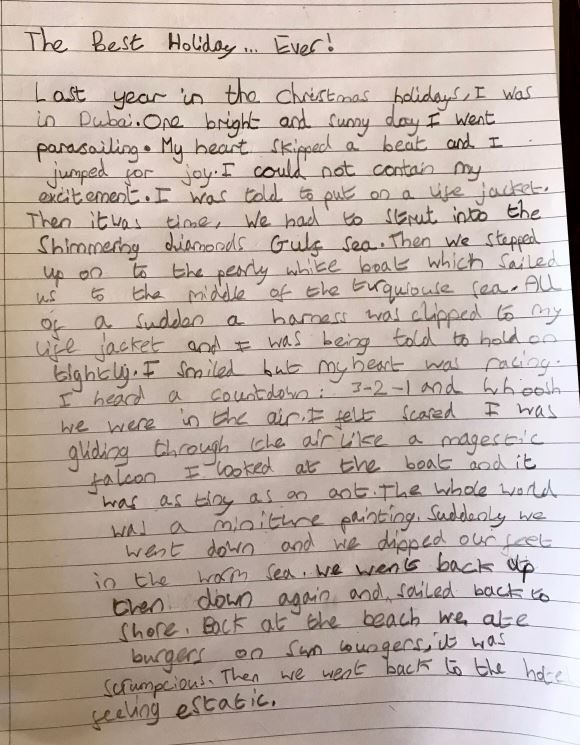 The Best Holiday... Ever!
Last year in the Christmas holidays, I was
in Dubai. One bright and sunny day I went
parasailing. My heart skipped a beat and I
jumped for joy. I could not contain my
excitement. I was told to put on a life jacket.
Then it was time, we had to strut into the
Shimmering diamonds Gulf sea. Then we stepped
up on to the pearly white boat which sailed
us to the middle of the turquiouse sea. All
of a sudden a harness was clipped to my
life jacket and I was being told to hold on
tightly. I smiled but my heart was racing.
I heard a countdown: 3-2-1 and whoosh
we were in the air. I felt scared I was
gliding through the air like a magestic
falcon I looked at the boat and it
was as tiny as an ant. The whole world
was a miniture painting. Suddenly we
went down and we dipped our feet
in the warm sea. We went back up
then down again and sailed back to
shore. Back at the beach we ate
burgers on sun loungers, it was
scrumpcious. Then we went back to the hote
feeling estatic.